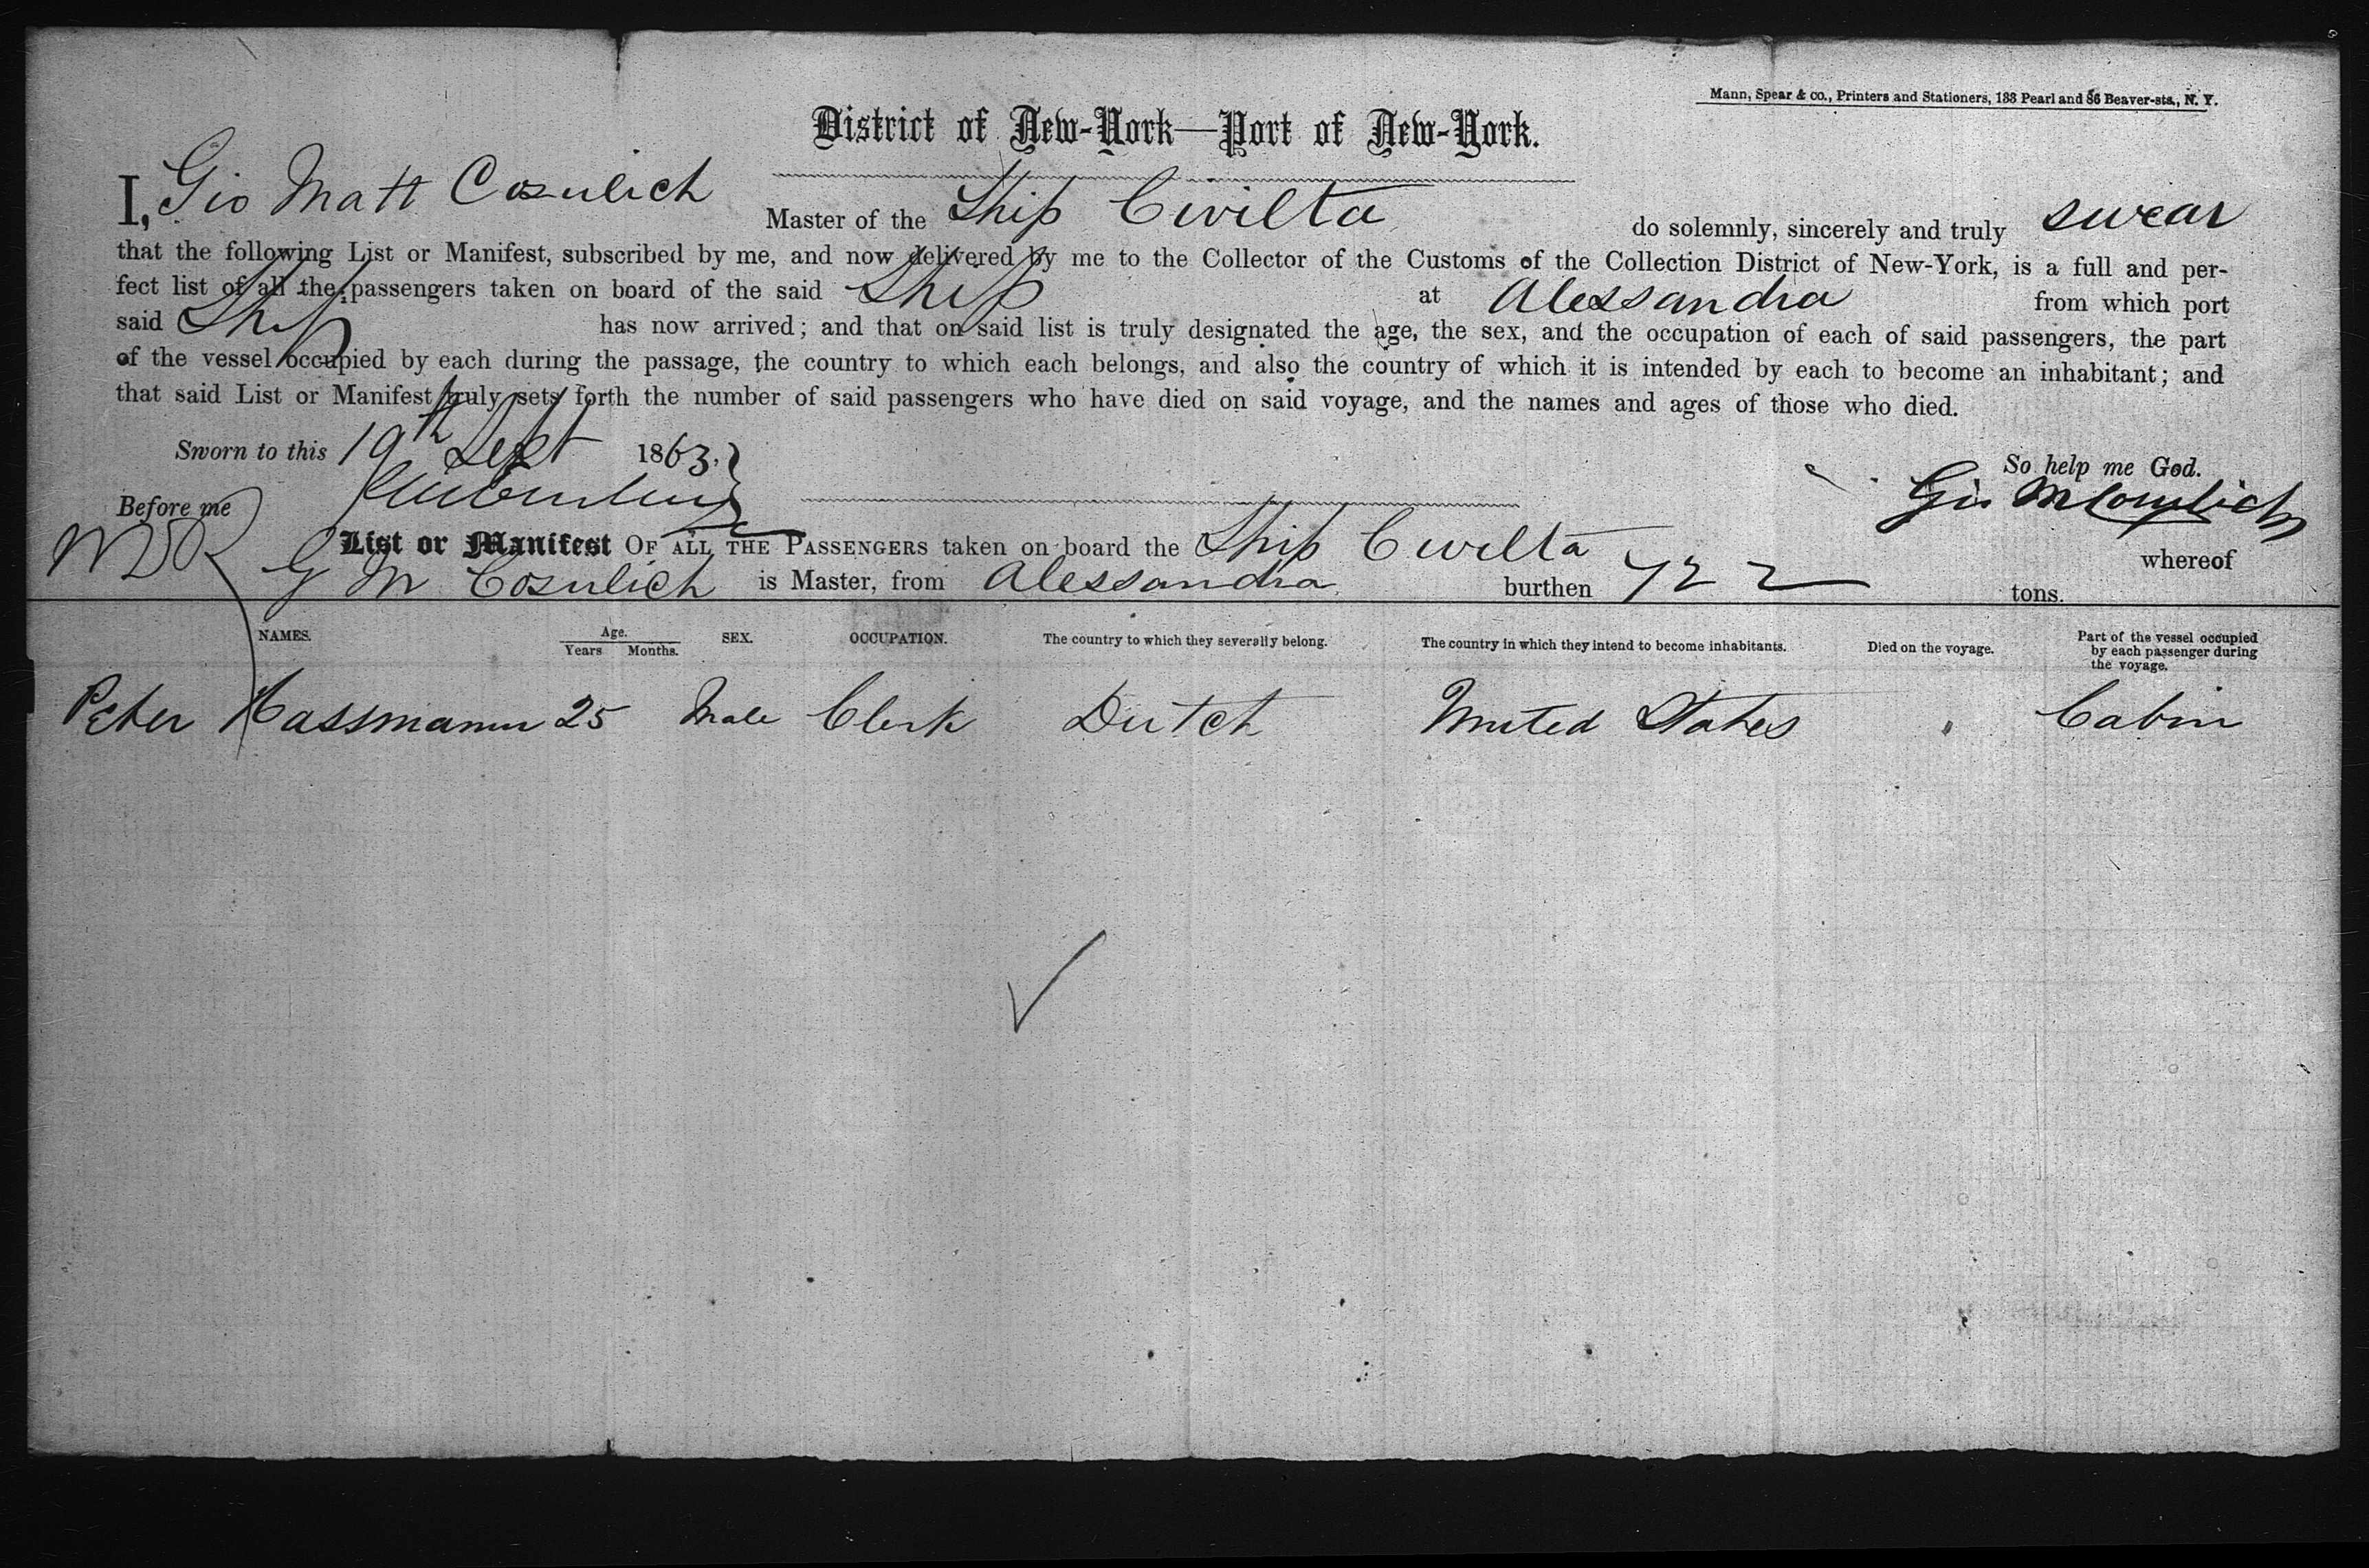 Mann, Spear & co., Printers and Stationers, 133 Pearl and 86 Beaver-sts., N. Y.
District of New-York—Port of New-York.
I, Gio Matt Cosulich Master of the Ship Civilta do solemnly, sincerely and truly swear
that the following List or Manifest, subscribed by me, and now delivered by me to the Collector of the Customs of the Collection District of New-York, is a full and per-
fect list of all the passengers taken on board of the said Ship at Alessandria from which port
said Ship has now arrived; and that on said list is truly designated the age, the sex, and the occupation of each of said passengers, the part
of the vessel occupied by each during the passage, the country to which each belongs, and also the country of which it is intended by each to become an inhabitant; and
that said List or Manifest truly sets forth the number of said passengers who have died on said voyage, and the names and ages of those who died.
Sworn to this 19th Sept 1863,
So help me God.
Before me
Gio M Cosulich
List or Manifest OF ALL THE PASSENGERS taken on board the Ship Civilta whereof
G M Cosulich is Master, from Alessandria burthen 722 tons.
NAMES. Age. Years Months. SEX. OCCUPATION. The country to which they severally belong. The country in which they intend to become inhabitants. Died on the voyage. Part of the vessel occupied by each passenger during the voyage.
Peter Hassmann 25 Male Clerk Dutch United States Cabin